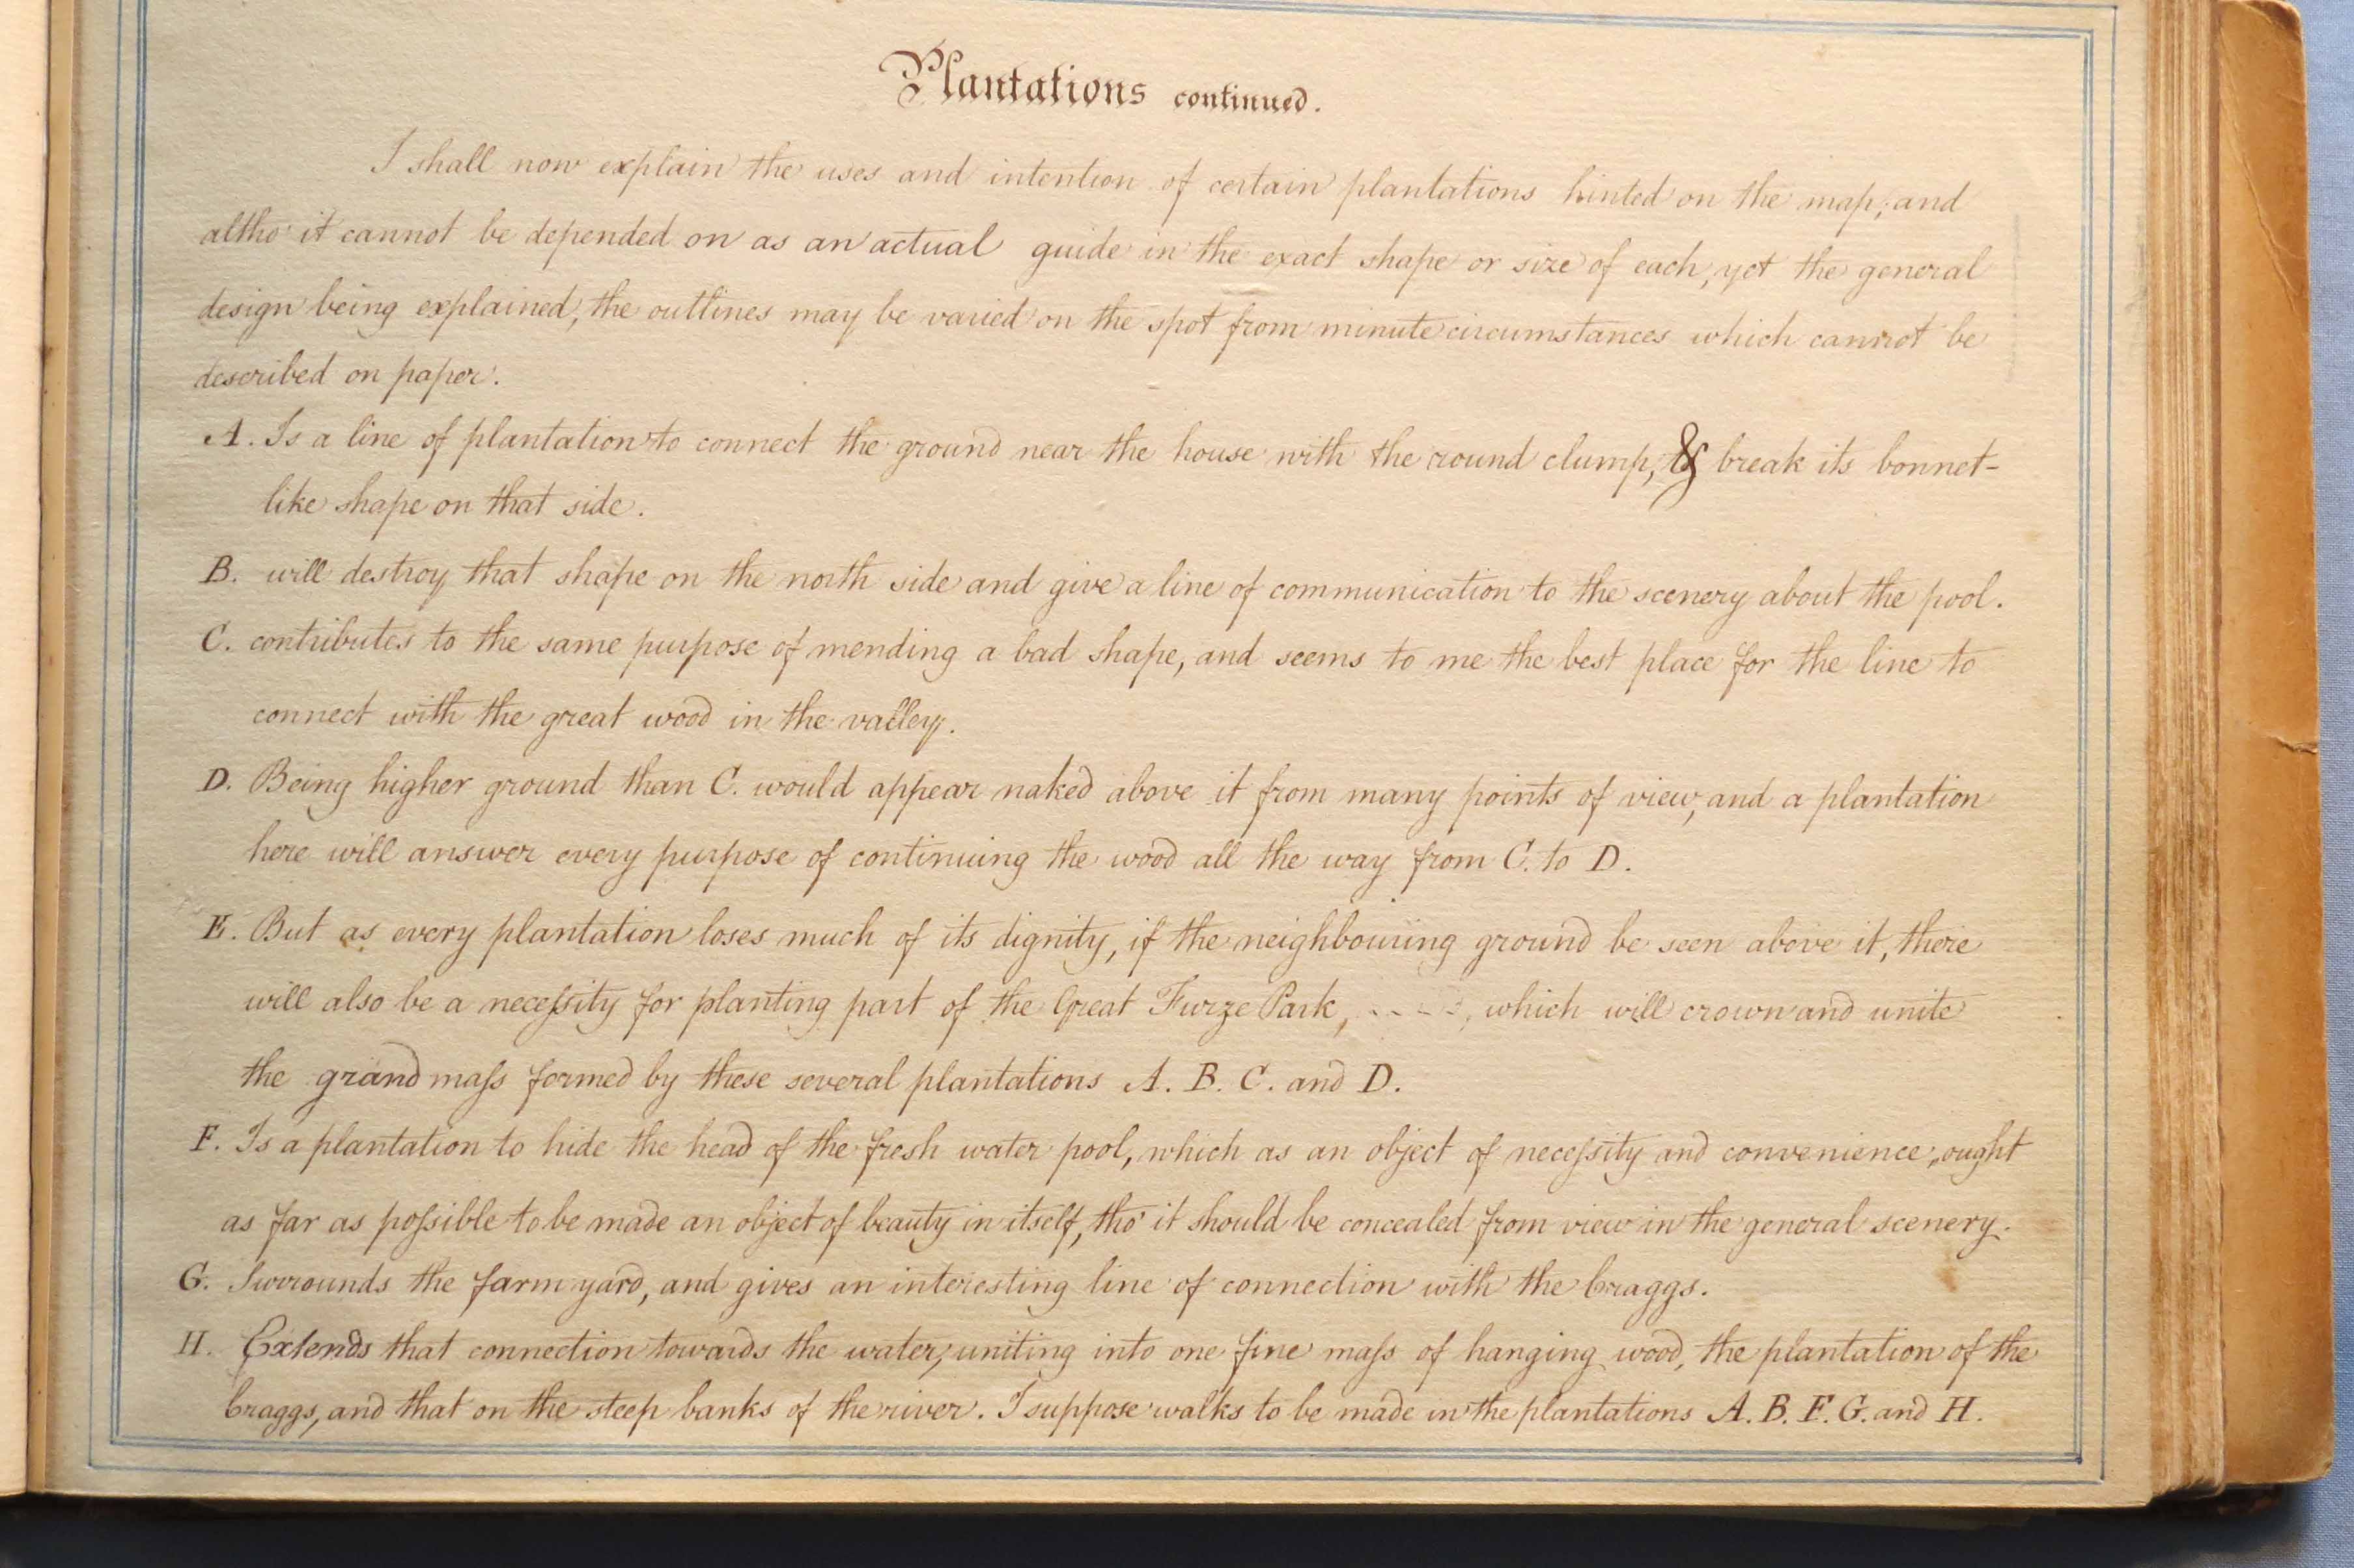 Plantations continued.
I shall now explain the uses and intention of certain plantations hinted on the map; and
altho' it cannot be depended on as an actual guide in the exact shape or size of each, yet the general
design being explained, the outlines may be varied on the spot from minute circumstances which cannot be
described on paper.
A. Is a line of plantation to connect the ground near the house with the round clump, & break its bonnet-
like shape on that side.
B. will destroy that shape on the north side and give a line of communication to the scenery about the pool.
C. contributes to the same purpose of mending a bad shape, and seems to me the best place for the line to
connect with the great wood in the valley.
D. Being higher ground than C. would appear naked above it from many points of view, and a plantation
here will answer every purpose of continuing the wood all the way from C. to D.
E. But as every plantation loses much of its dignity, if the neighbouring ground be seen above it, there
will also be a neceſsity for planting part of the Great Furze Park, - - - - , which will crown and unite
the grand maſs formed by these several plantations A. B. C. and D.
F. Is a plantation to hide the head of the fresh water pool, which as an object of neceſsity and convenience, ought
as far as poſsible to be made an object of beauty in itself, tho' it should be concealed from view in the general scenery.
G. Surrounds the farm yard, and gives an interesting line of connection with the Craggs.
H. Extends that connection towards the water, uniting into one fine maſs of hanging wood, the plantation of the
Craggs, and that on the steep banks of the river. I suppose walks to be made in the plantations A. B. F. G. and H.